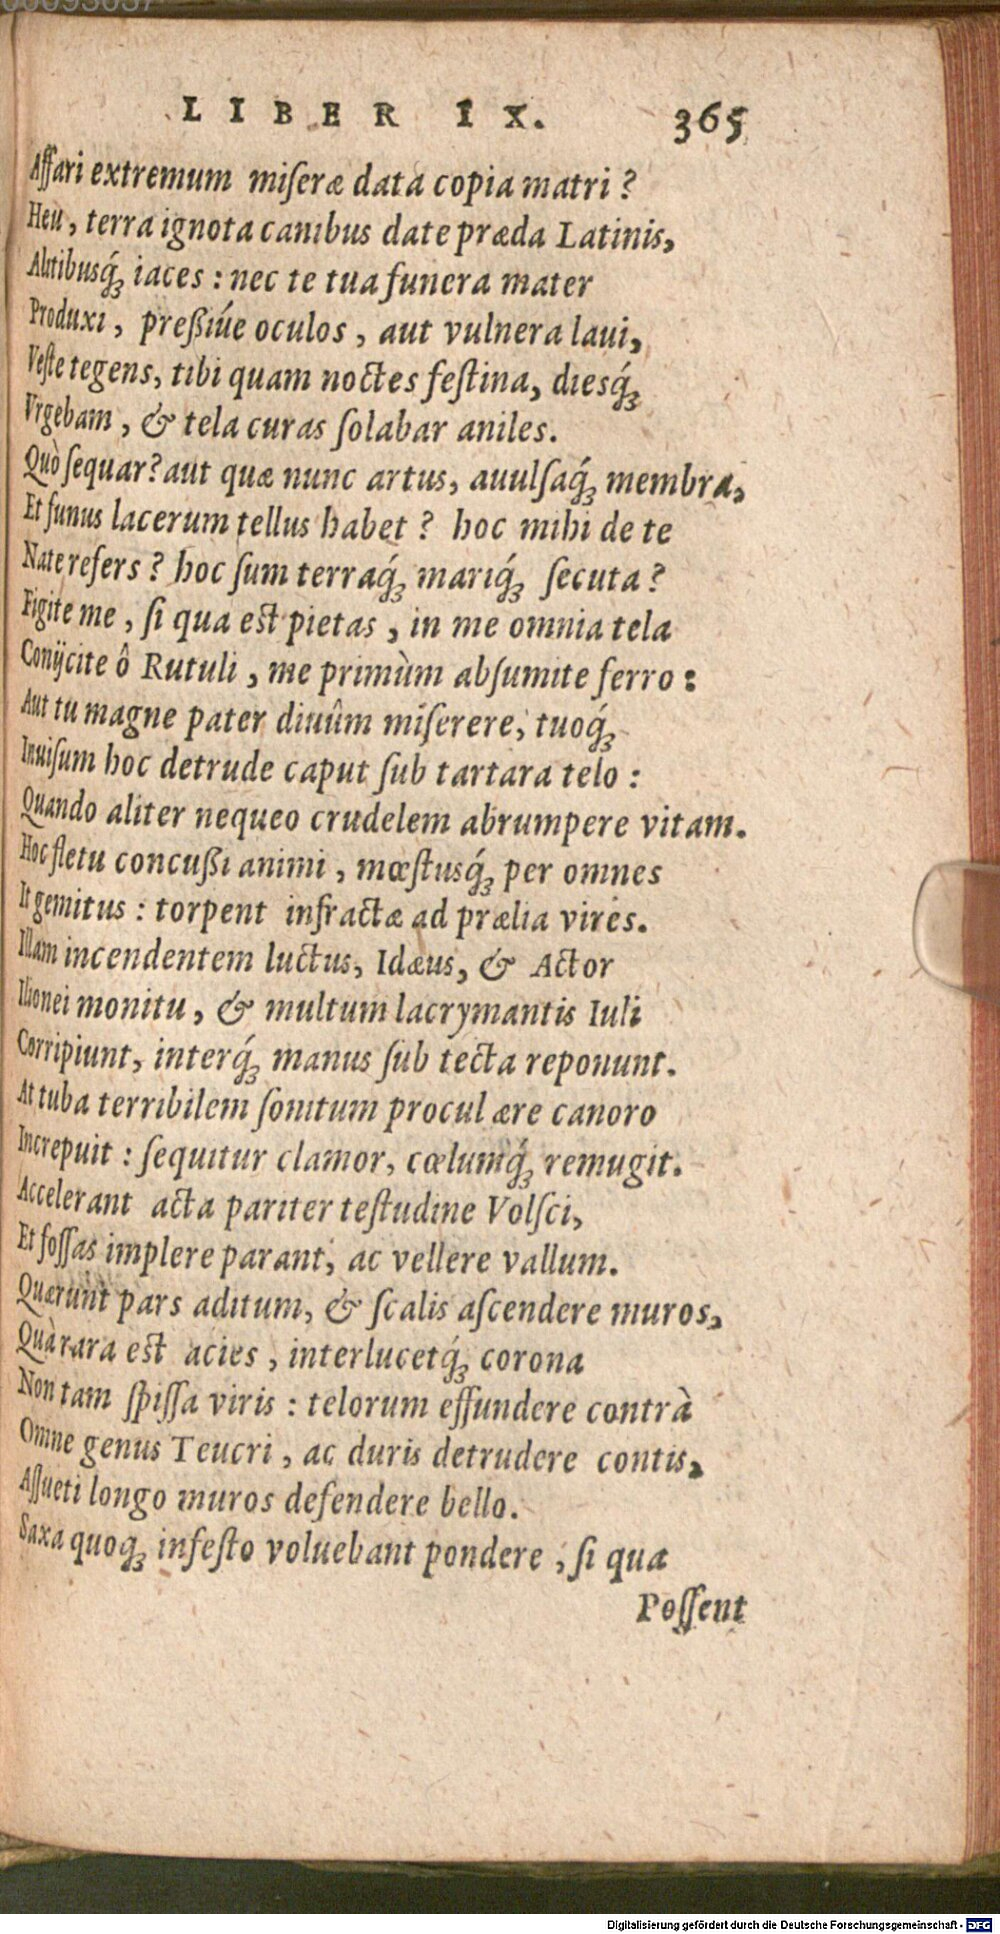 LIBER IX. 365
Affari extremum miſeræ data copia matri?
Heu, terra ignota canibus date præda Latinis,
Alitibusq́ꝫ iaces: nec te tua funera mater
Produxi, preßiúe oculos, aut vulnera laui,
Veſte tegens, tibi quam noctes feſtina, diesq́ꝫ
Vrgebam, & tela curas ſolabar aniles.
Quò ſequar? aut quæ nunc artus, auulſaq́ꝫ membra,
Et funus lacerum tellus habet? hoc mihi de te
Nate refers? hoc ſum terraq́ꝫ mariq́ꝫ ſecuta?
Figite me, ſi qua est pietas, in me omnia tela
Conijcite ô Rutuli, me primùm abſumite ferro:
Aut tu magne pater diuûm miſerere, tuoq́ꝫ
Inuiſum hoc detrude caput ſub tartara telo:
Quando aliter nequeo crudelem abrumpere vitam.
Hoc fletu concußi animi, mœſtusq́ꝫ per omnes
It gemitus: torpent infractæ ad prælia vires.
Illam incendentem luctus, Idæus, & Actor
Ilionei monitu, & multum lacrymantis Iuli
Corripiunt, interq́ꝫ manus ſub tecta reponunt.
At tuba terribilem ſonitum procul ære canoro
Increpuit: ſequitur clamor, cœlumq́ꝫ remugit.
Accelerant acta pariter teſtudine Volſci,
Et foſſas implere parant, ac vellere vallum.
Quærunt pars aditum, & ſcalis aſcendere muros,
Quà rara est acies, interlucetq́ꝫ corona
Non tam ſpiſſa viris: telorum effundere contrà
Omne genus Teucri, ac duris detrudere contis,
Aſſueti longo muros defendere bello.
Saxa quoqꝫ infeſto voluebant pondere, ſi qua
Poſſent
Digitalisierung gefördert durch die Deutsche Forschungsgemeinschaft - DFG